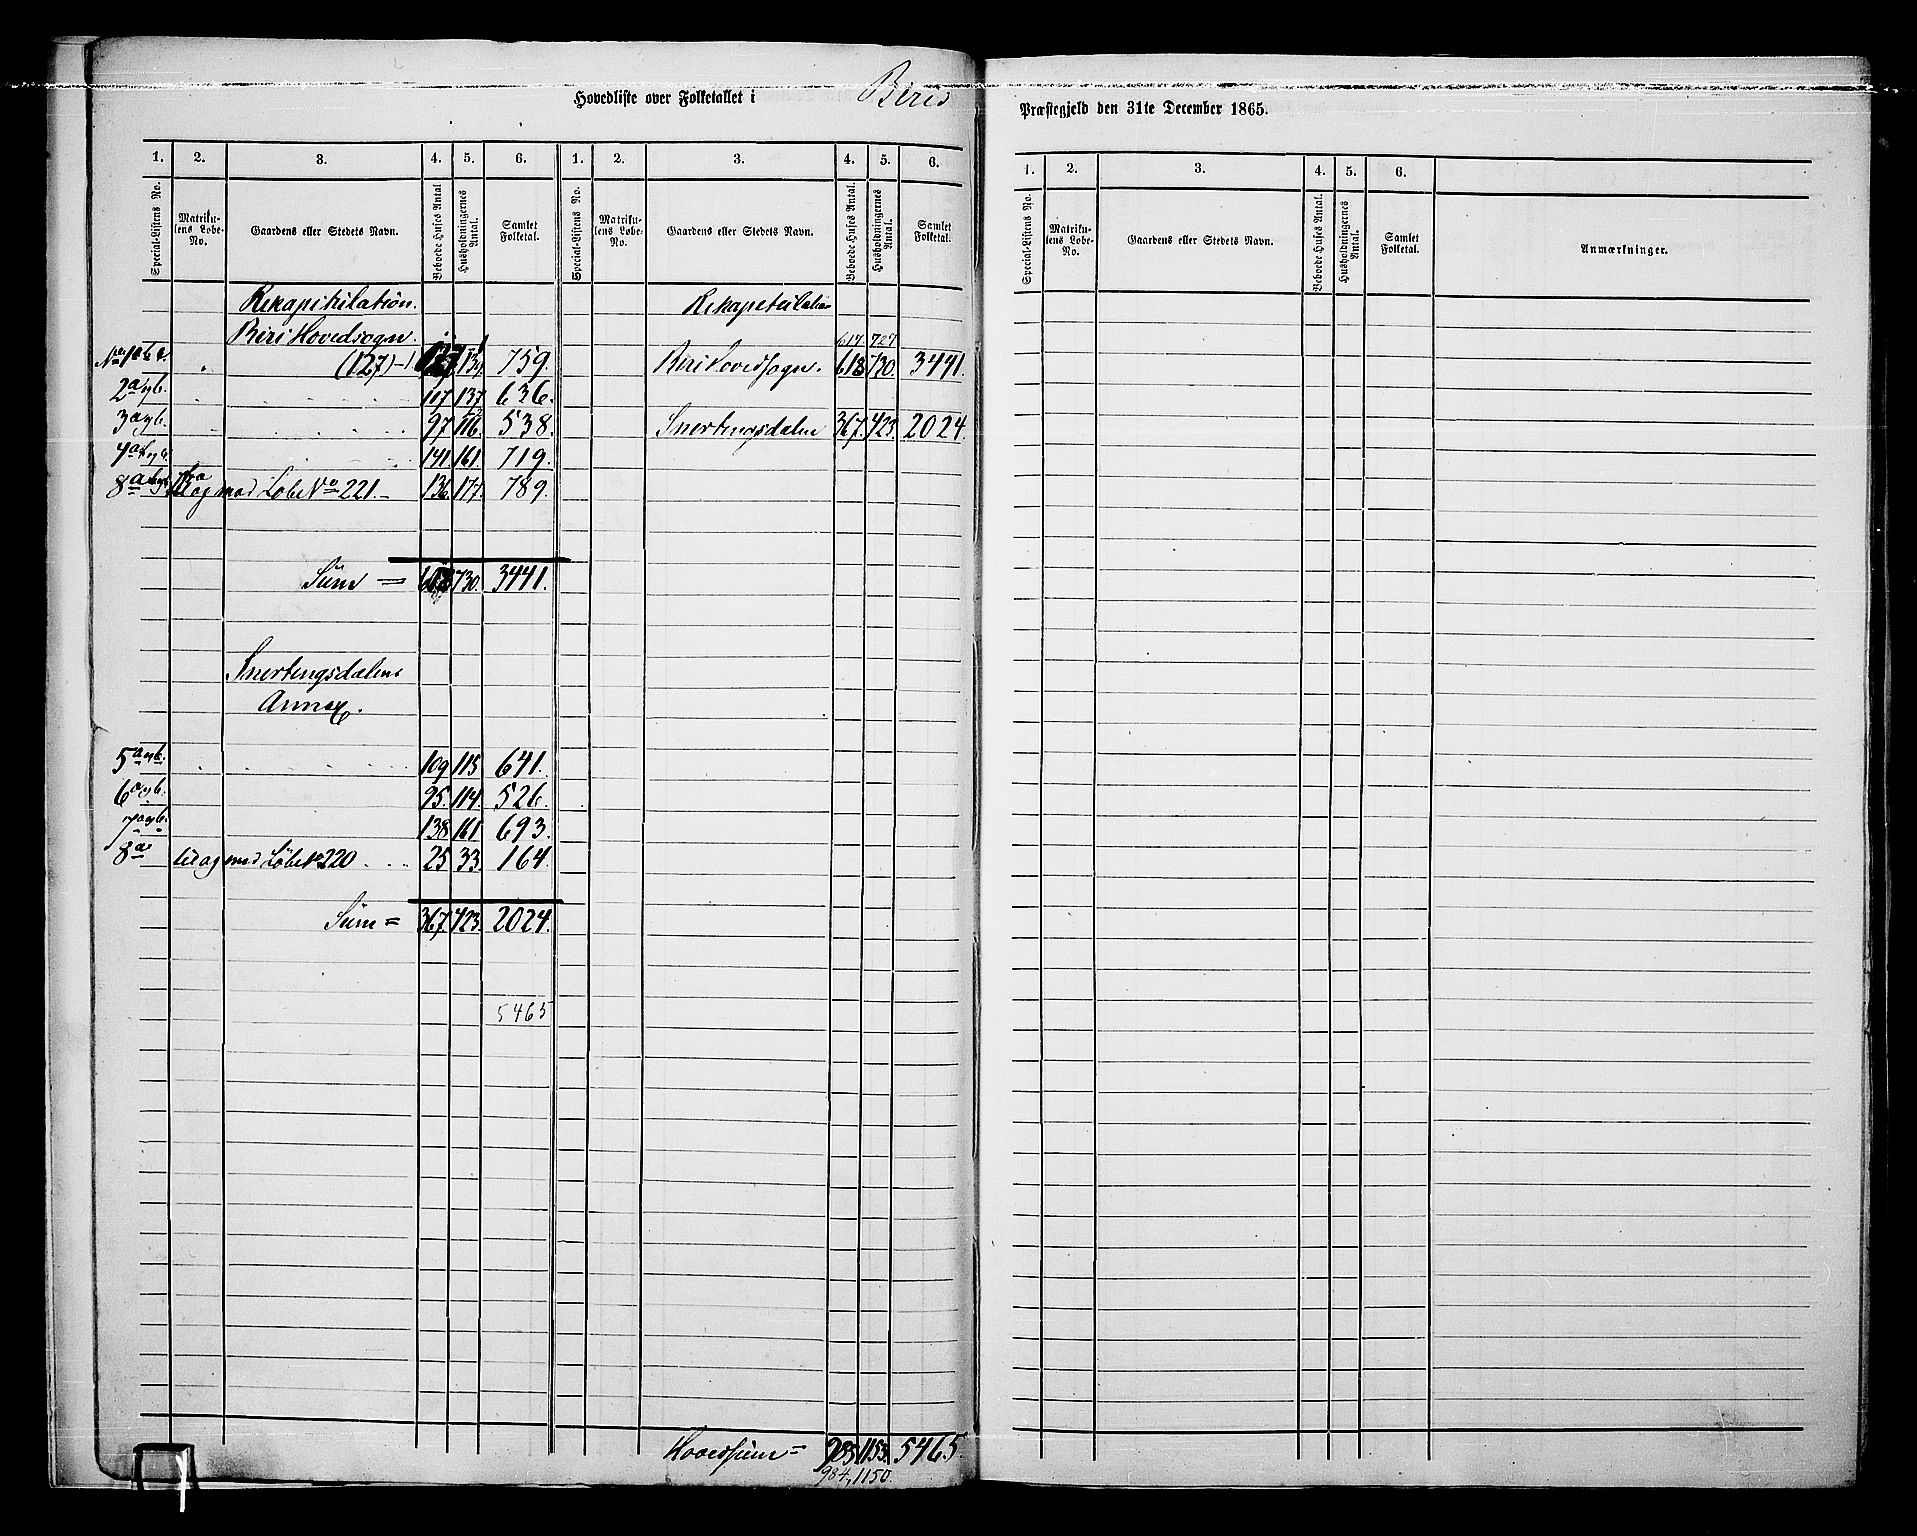 Hovedliste over Folketallet i Biris Præstegjeld den 31te December 1865.
1. 2. 3. 4. 5. 6. 1. 2. 3. 4. 5. 6.
Special-Listens No. Matrikulens Løbe-No. Gaardens eller Stedets Navn. Beboede Huses Antal Husholdningernes Antal. Samlet Folketal. Special-Listens No. Matrikulens Løbe-No. Gaardens eller Stedets Navn. Beboede Huses Antal. Husholdningernes Antal. Samlet Folketal.
Rekapitulation. Rekapitulation
Biri Hovedsogn. 617 727
(127)-1 759. Biri Hovedsogn. 618 730. 3441.
2 a og b. 117 137 636.
3 a og b. 97 116. 538. Snertingsdalen 367. 423. 2024.
4 a og b. 141 161. 719.
8 a med Løbe No 221. 136. 177. 789.
Sum = 618 730. 3441.
Snertingsdalens
Annex.
5 a og b. 109 115 641.
6 a og b. 95. 114. 526.
7 a og b. 138 161. 693.
8 a til og med Løbe No 220 25 33. 164.
Sum = 367 423. 2024.
5465
Hovedsum = 985 1153. 5465.
984, 1150.
1. 2. 3. 4. 5. 6.
Special-Listens No. Matrikulens Løbe-No. Gaardens eller Stedets Navn. Beboede Huses Antal. Husholdningernes Antal. Samlet Folketal. Anmærkninger.